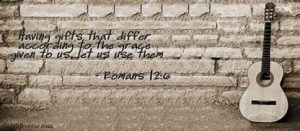 Having gifts that differ
according to the grace
given to us, let us use them
- Romans 12:6